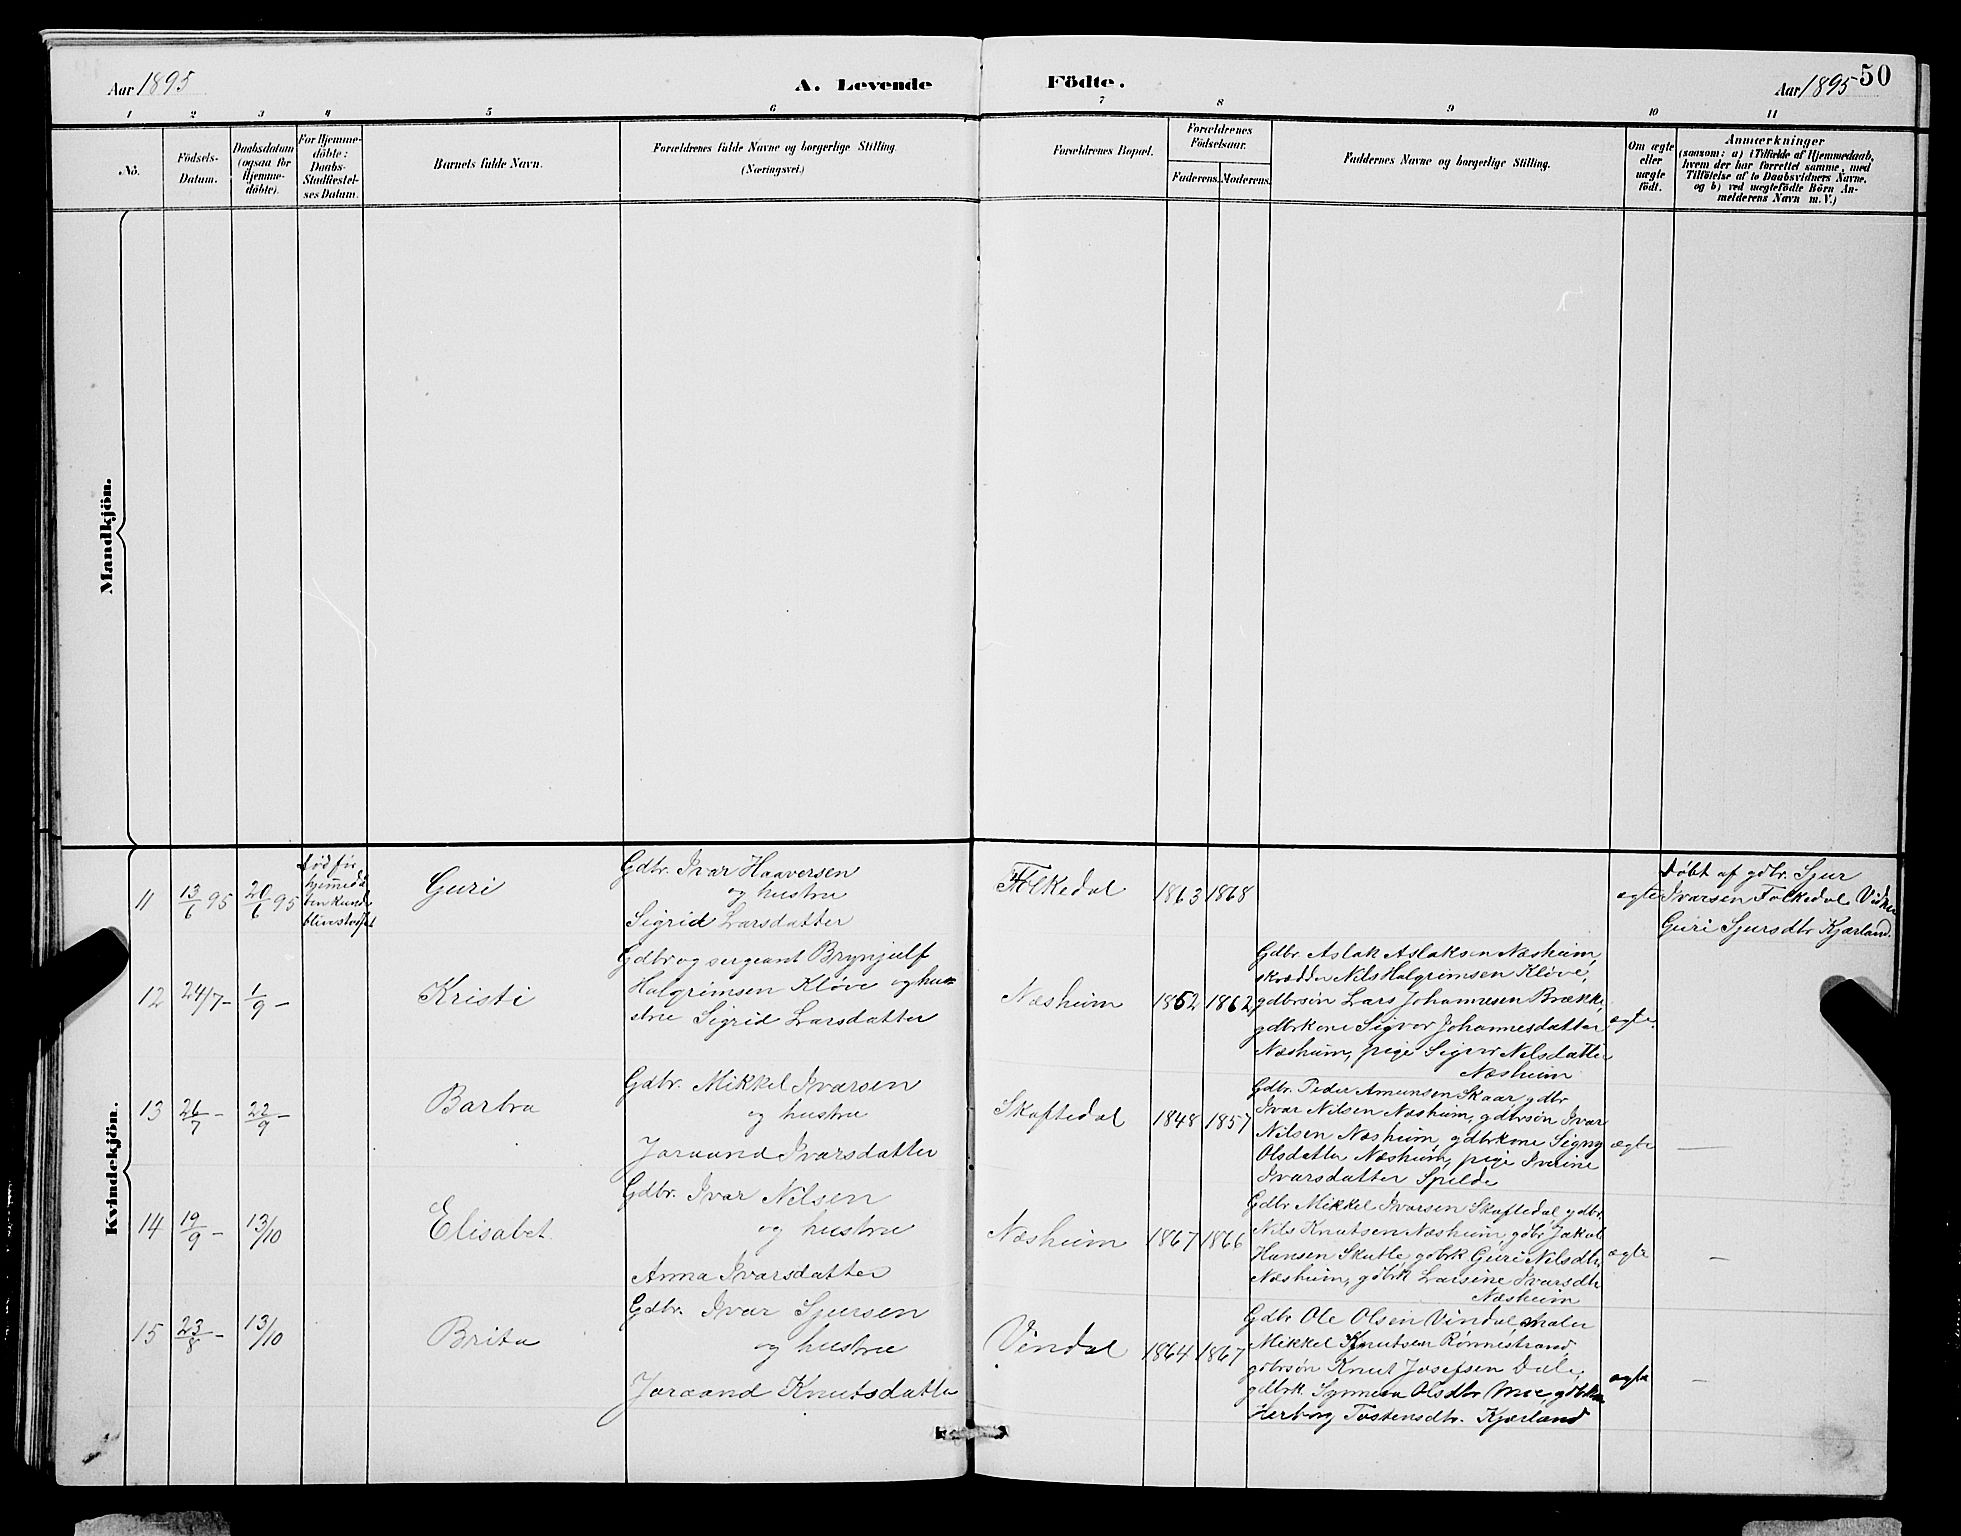 Aar 1895
A. Levende Födte.
Aar 1895
50
1 2 3 4 5 6 7 8 9 10 11
No.
Födsels-
Datum.
Daabsdatum
(ogsaa for
Hjemme-
döbte).
For Hjemme-
döbte:
Daabs-
Stadfæstel-
ses Datum.
Barnets fulde Navn.
Forældrenes fulde Navne og borgerlige Stilling.
(Næringsvei.)
Forældrenes Bopæl.
Forældrenes
Födselsaar.
Faderens. Moderens.
Faddernes Navne og borgerlige Stilling.
Om ægte
eller
uægte
födt.
Anmærkninger
(saasom: a) i Tilfælde af Hjemmedaab,
hvem der har forrettet samme, med
Tilföielse af to Daabsvidners Navne,
og b) ved uægtefödte Börn An-
melderens Navn m. V.)
Mandkjön.
Kvindekjön.
11
13/6 95
20/6 95
død før
hjemmedå
ben kunde
Guri
Gdbr. Ivar Haaversen
og hustru
Sigrid Larsdatter
Folkedal
1863 1868
ægte
Døbt af gdbr. Sjur
Ivarsen Folkedal
Guri Sjursdtr Kjærland.
12
24/7 -
1/9 -
Kristi
Gdbr og sergeant Brynjulf
Halgrimsen Kløve og hu=
stru Sigrid Larsdatter
Næsheim
1862 1862
Gdbr Aslak Aslaksen Næsheim,
skrædder Nils Halgrimsen Kløve,
gdbrsøn Lars Johannesen Brække,
gdbrkone Sigvor Johannesdatter
Næsheim, pige Nilsdatter
Næsheim
ægte.
13
26/7 -
22/9 -
Barbra
Gdbr. Mikkel Ivarsen
og hustru
Joraand Ivarsdatter
Skaftedal
1848 1857
Gdbr. Peder Amunsen Skaar, gdbr
Ivar Nilsen Næsheim, gdbrsøn Ivar
Nilsen Næsheim, gdbrkone Signy
Olsdatter Næsheim, pige Iverine
Ivarsdatter Spilde
ægte
—
14
19/9 -
13/10
Elisabet
Gdbr. Ivar Nilsen
og hustru
Anna Ivarsdatter
Næsheim
1867 1866
Gdbr Mikkel Ivarsen Skaftedal, gdbr.
Nils Knutsen Næsheim, gdbr Jakob
Hansen Skutle, gdbrk Guri Nilsdtr.
Næsheim, gdbrk Larsine Ivarsdtr
Næsheim
ægte
—
15
23/8 -
13/10
Brita
Gdbr. Ivar Sjursen
og hustru
Joraand Knutsdatter
Vindal
1864 1867
Gdbr Ole Olsen Vindal, maler
Mikkel Knutsen Rønnestrand,
gdbrsøn Knut Josefsen Dale,
gdbrk Synneva Olsdtr Moe,
Herborg Tostensdtr. Kjærland
ægte
—